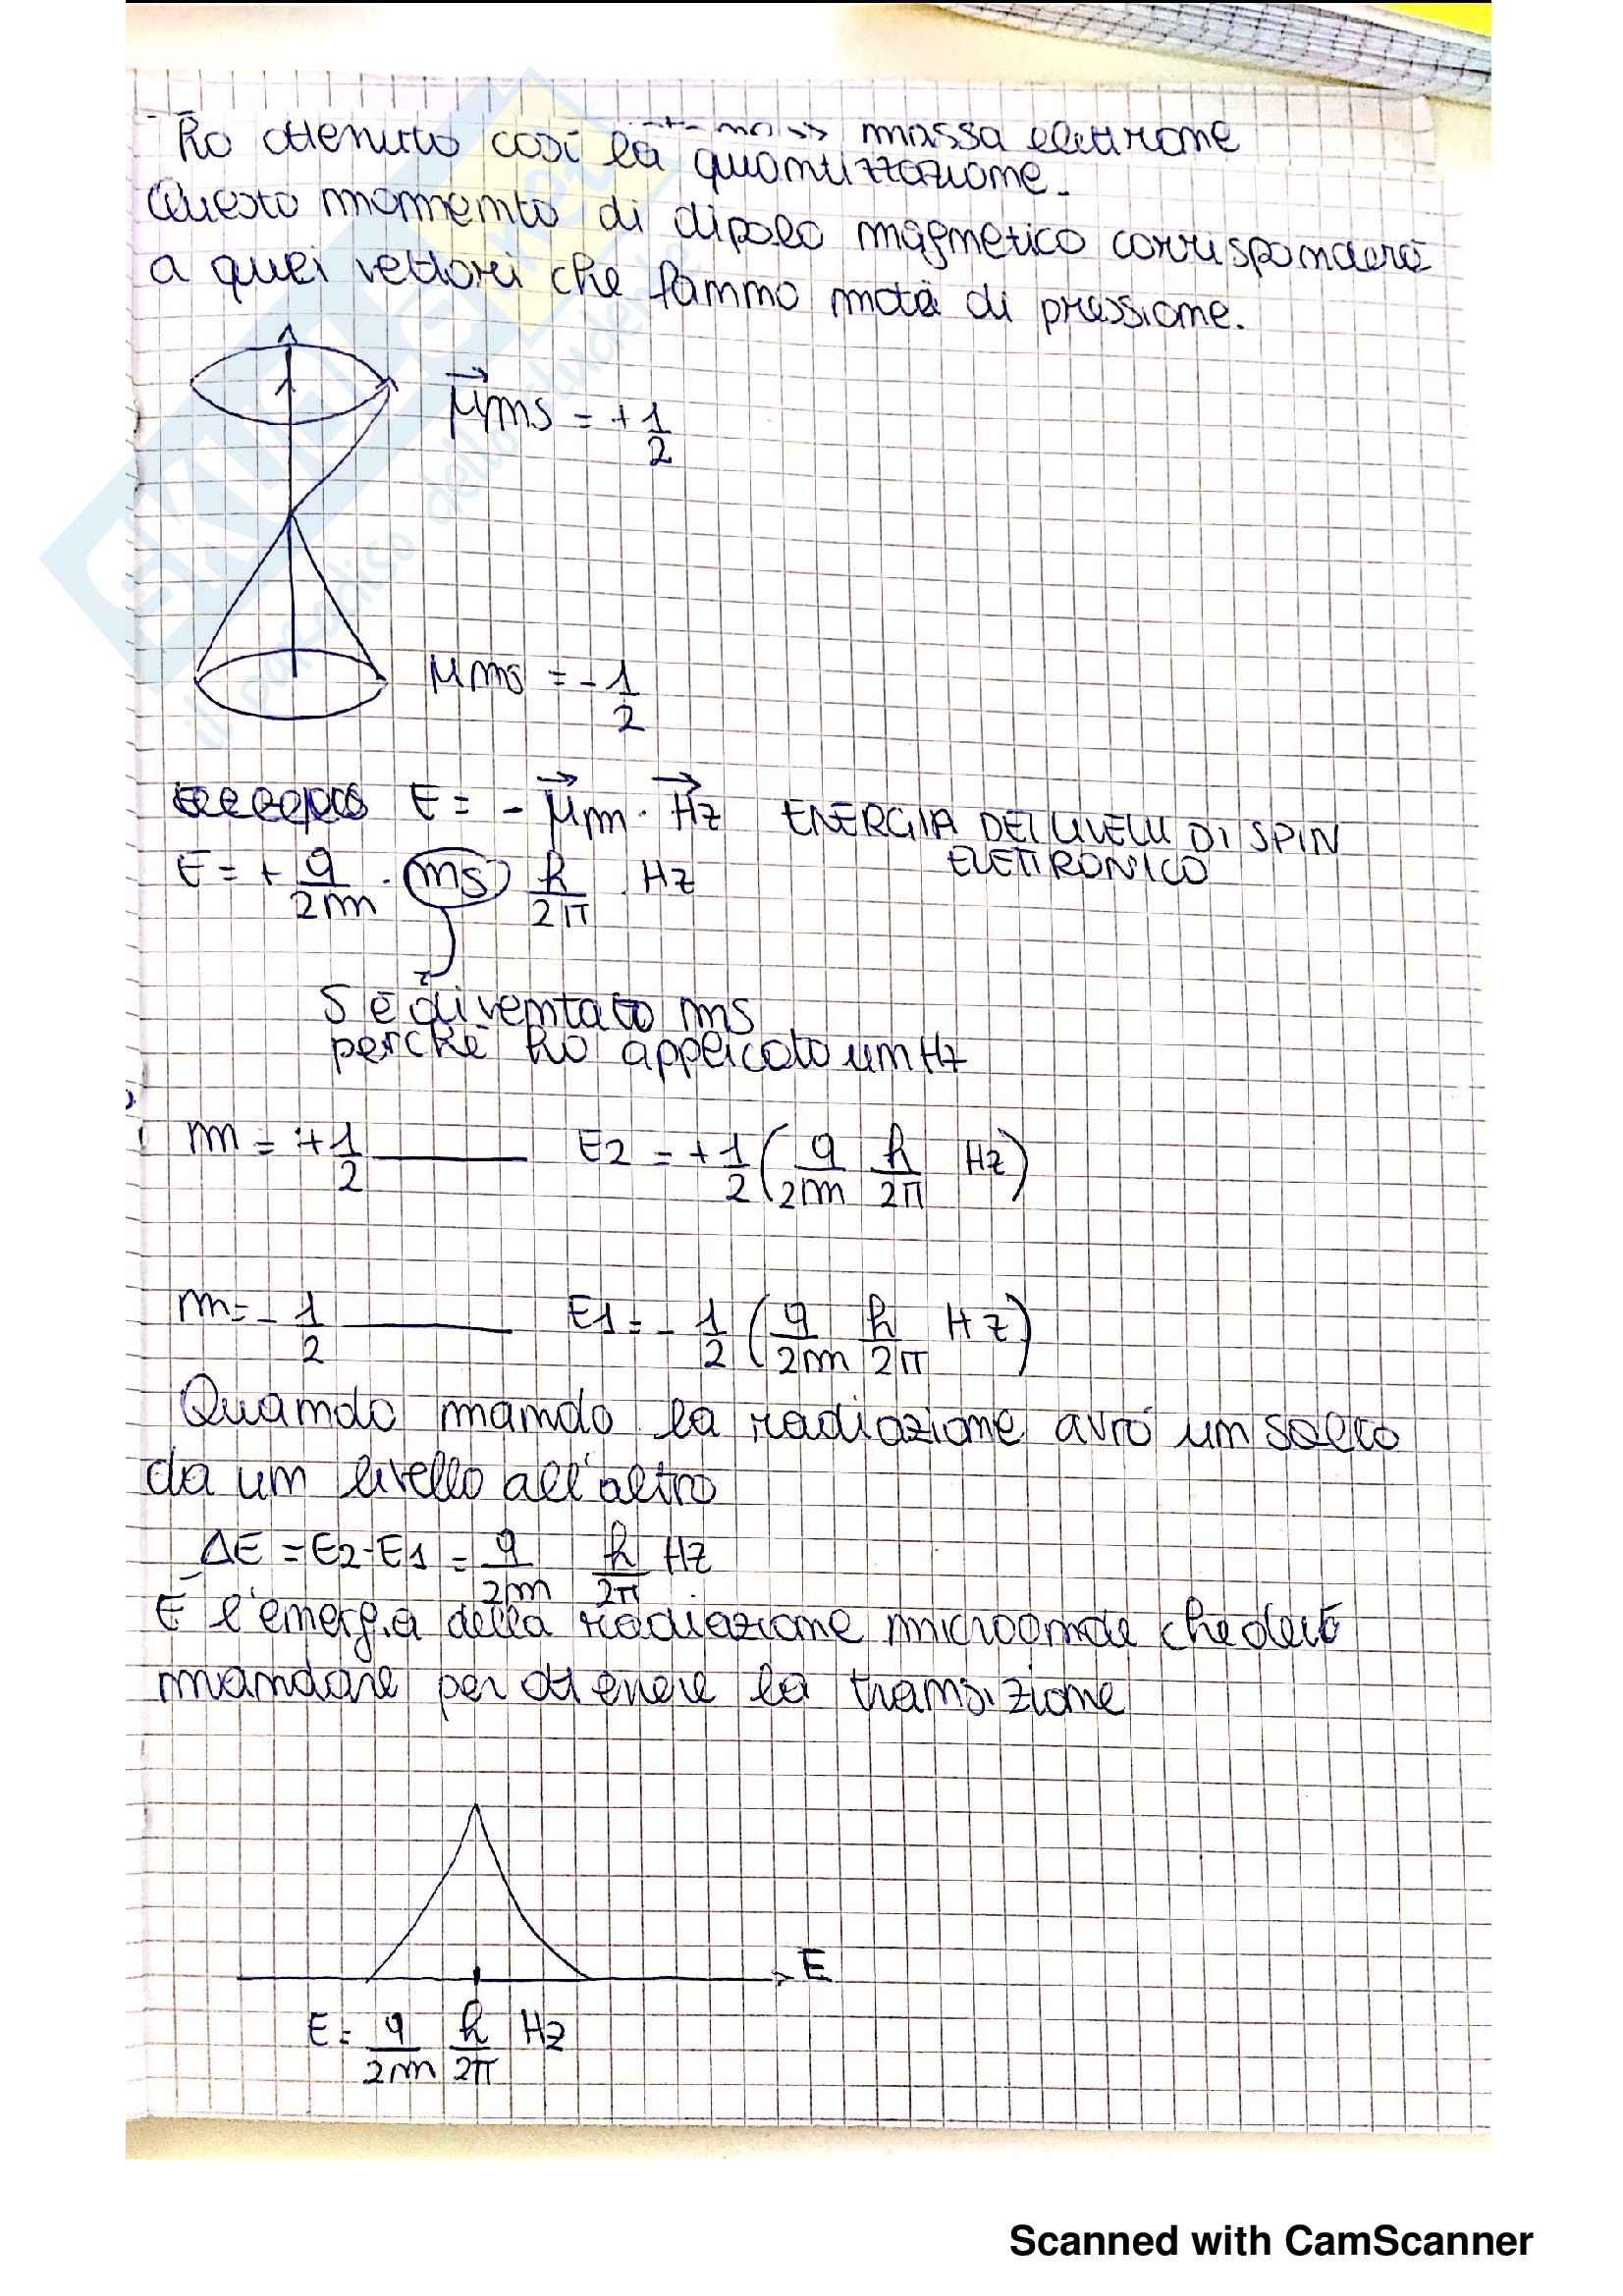 massa elettrone
ho ottenuto così la quantizzazione.
Questo momento di dipolo magnetico corrisponderà
a quei vettori che fanno moto di pressione.
μms = +1/2
μms = -1/2
E = - μm · Hz ENERGIA DEI LIVELLI DI SPIN
ELETTRONICO
E = + q/2m · ms h/2π · Hz
S è diventato ms
perchè ho applicato um Hz
m = +1/2 E2 = +1/2 (q/2m h/2π Hz)
m = -1/2 E1 = -1/2 (q/2m h/2π Hz)
Quando mando la radiazione avrò un salto
da un livello all'altro
ΔE = E2-E1 = q/2m h/2π Hz
È l'energia della radiazione microonde che devo
mandare per ottenere la transizione
E
E = q/2m h/2π Hz
SKUOLA.net
il paradiso dello studente
Scanned with CamScanner